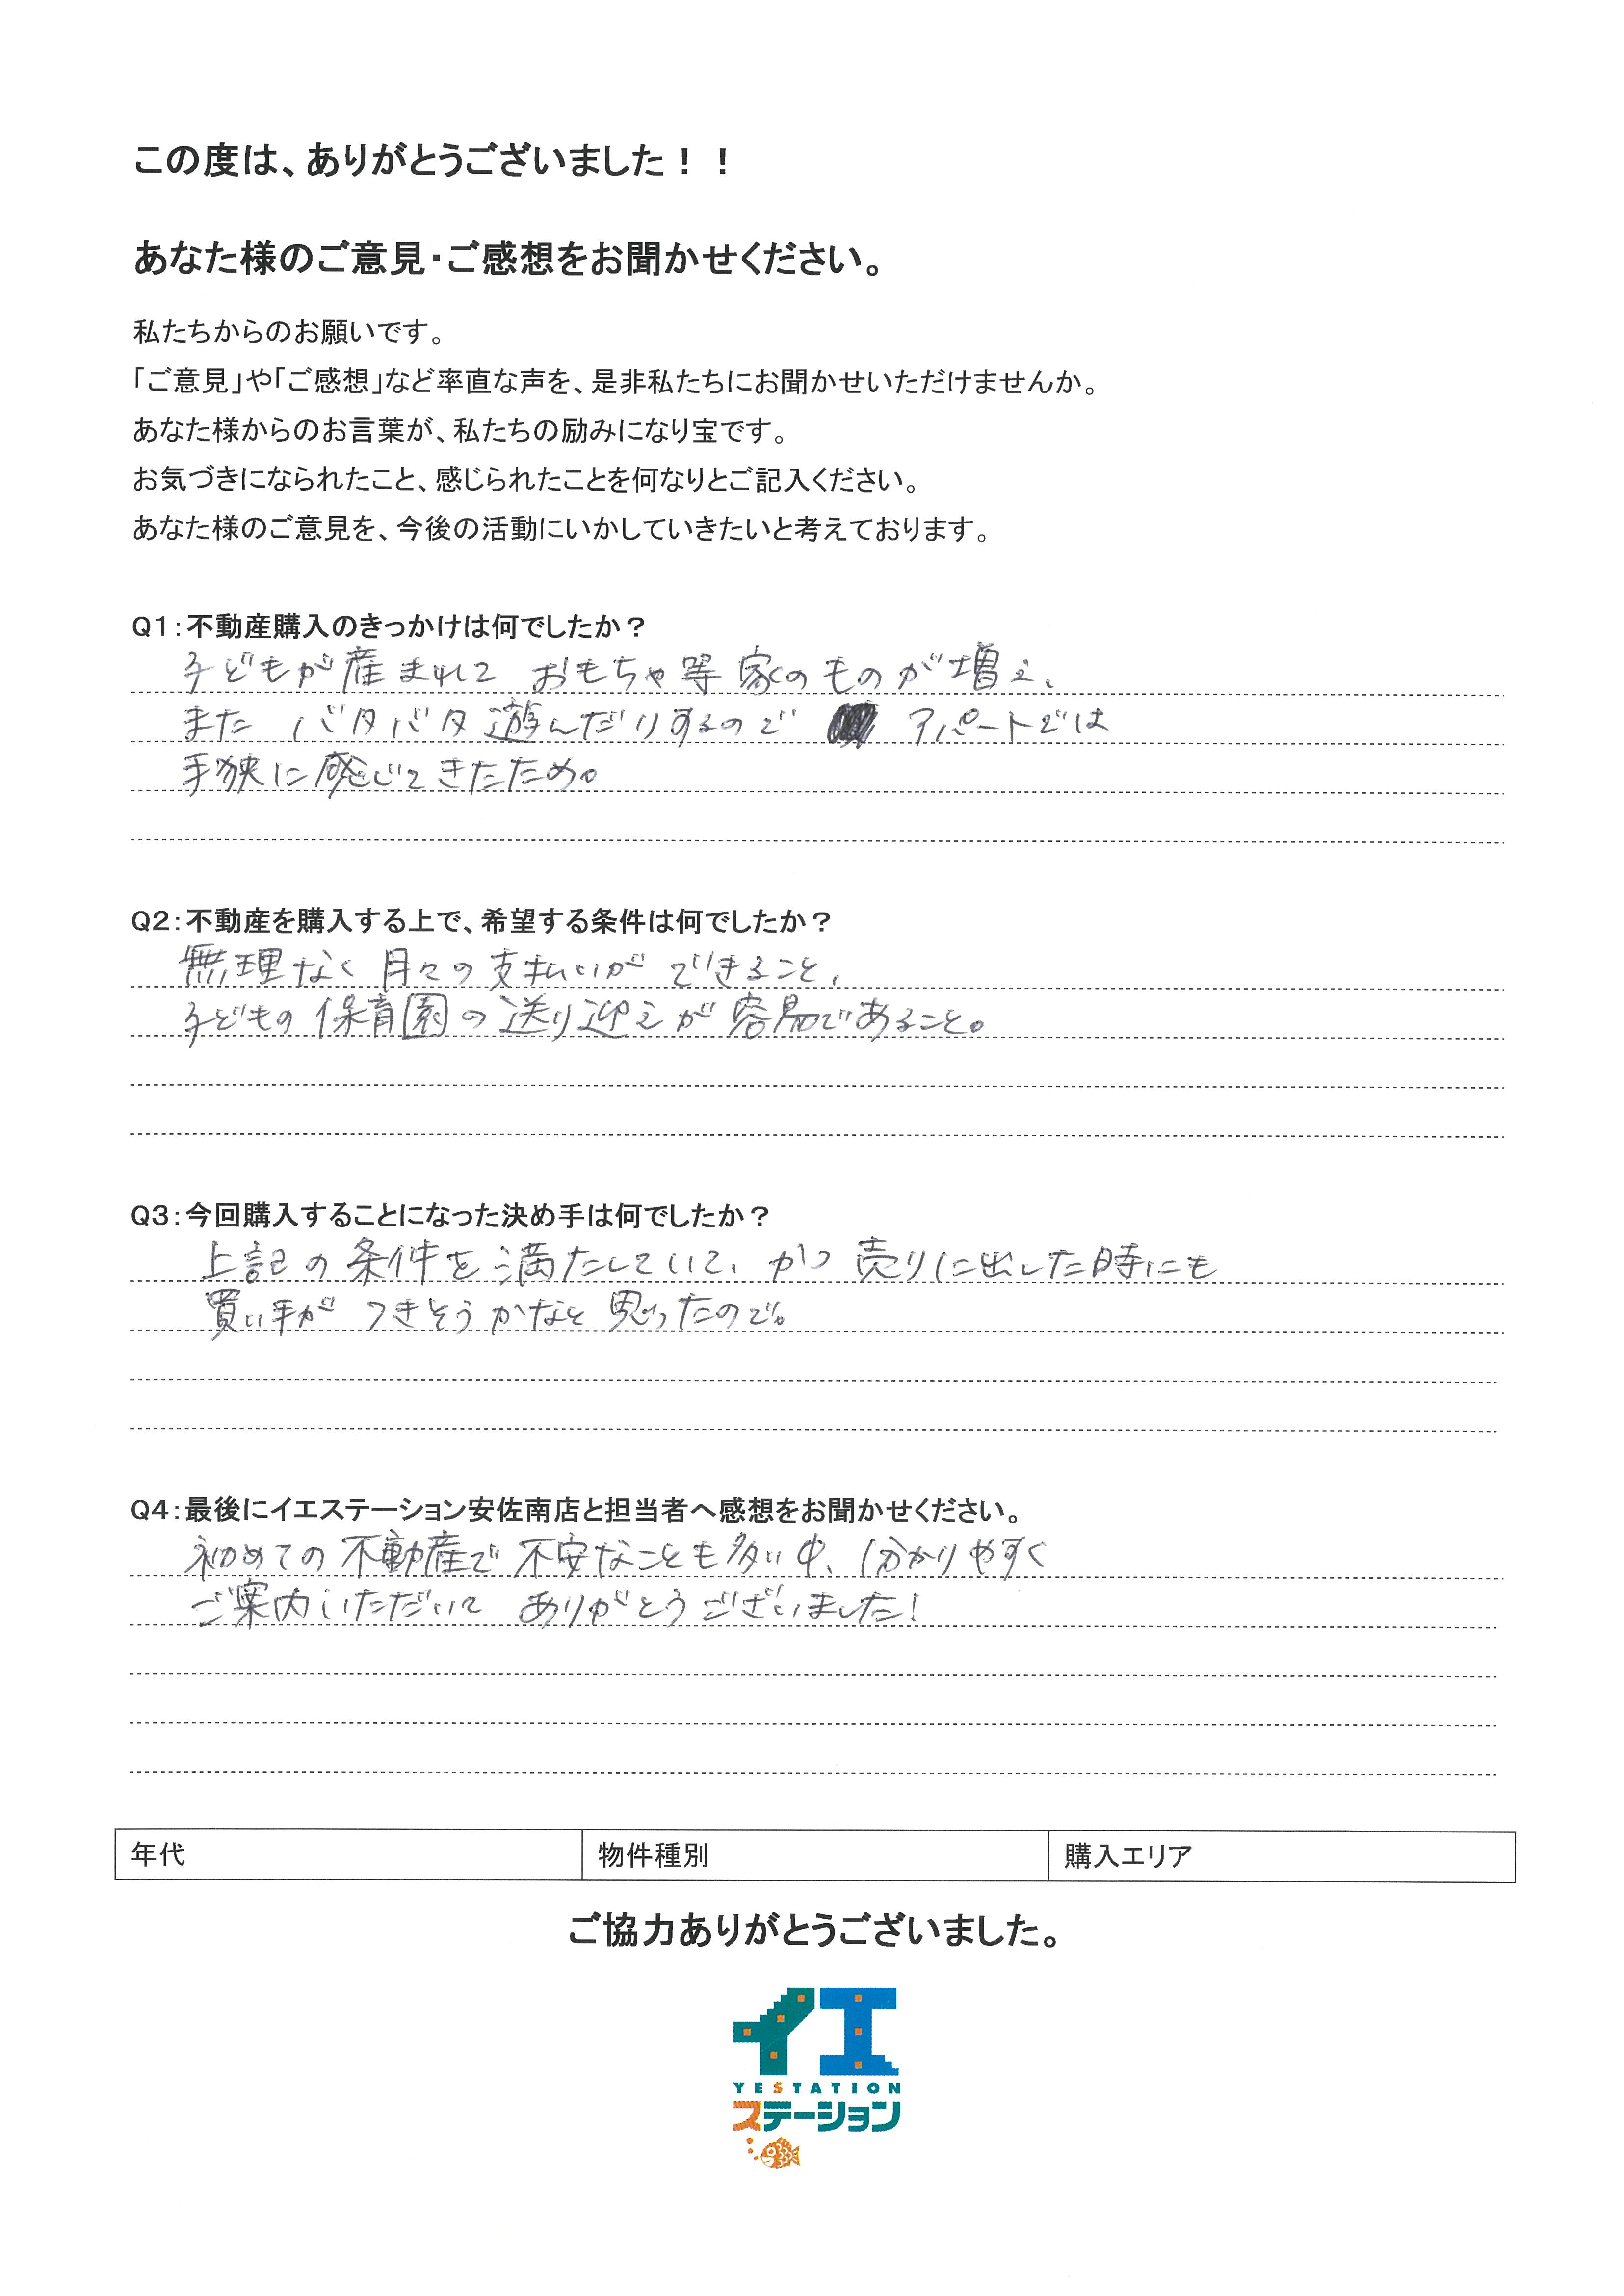 この度は、ありがとうございました！！
あなた様のご意見・ご感想をお聞かせください。
私たちからのお願いです。
「ご意見」や「ご感想」など率直な声を、是非私たちにお聞かせいただけませんか。
あなた様からのお言葉が、私たちの励みになり宝です。
お気づきになられたこと、感じられたことを何なりとご記入ください。
あなた様のご意見を、今後の活動にいかしていきたいと考えております。
Q1：不動産購入のきっかけは何でしたか？
子どもが産まれて おもちゃ等 家のものが増え、
また バタバタ遊んだりするので アパートでは
手狭に感じてきたため。
Q2：不動産を購入する上で、希望する条件は何でしたか？
無理なく 月々の支払いが できること、
子どもの保育園の送り迎えが容易であること。
Q3：今回購入することになった決め手は何でしたか？
上記の条件を満たしていて、かつ 売りに出した時にも
買い手が つきそうかなと思ったので。
Q4：最後にイエステーション安佐南店と担当者へ感想をお聞かせください。
初めての不動産で不安なことも多い中、分かりやすく
ご案内いただいて ありがとうございました！
年代 物件種別 購入エリア
ご協力ありがとうございました。
イエ
YESTATION
ステーション